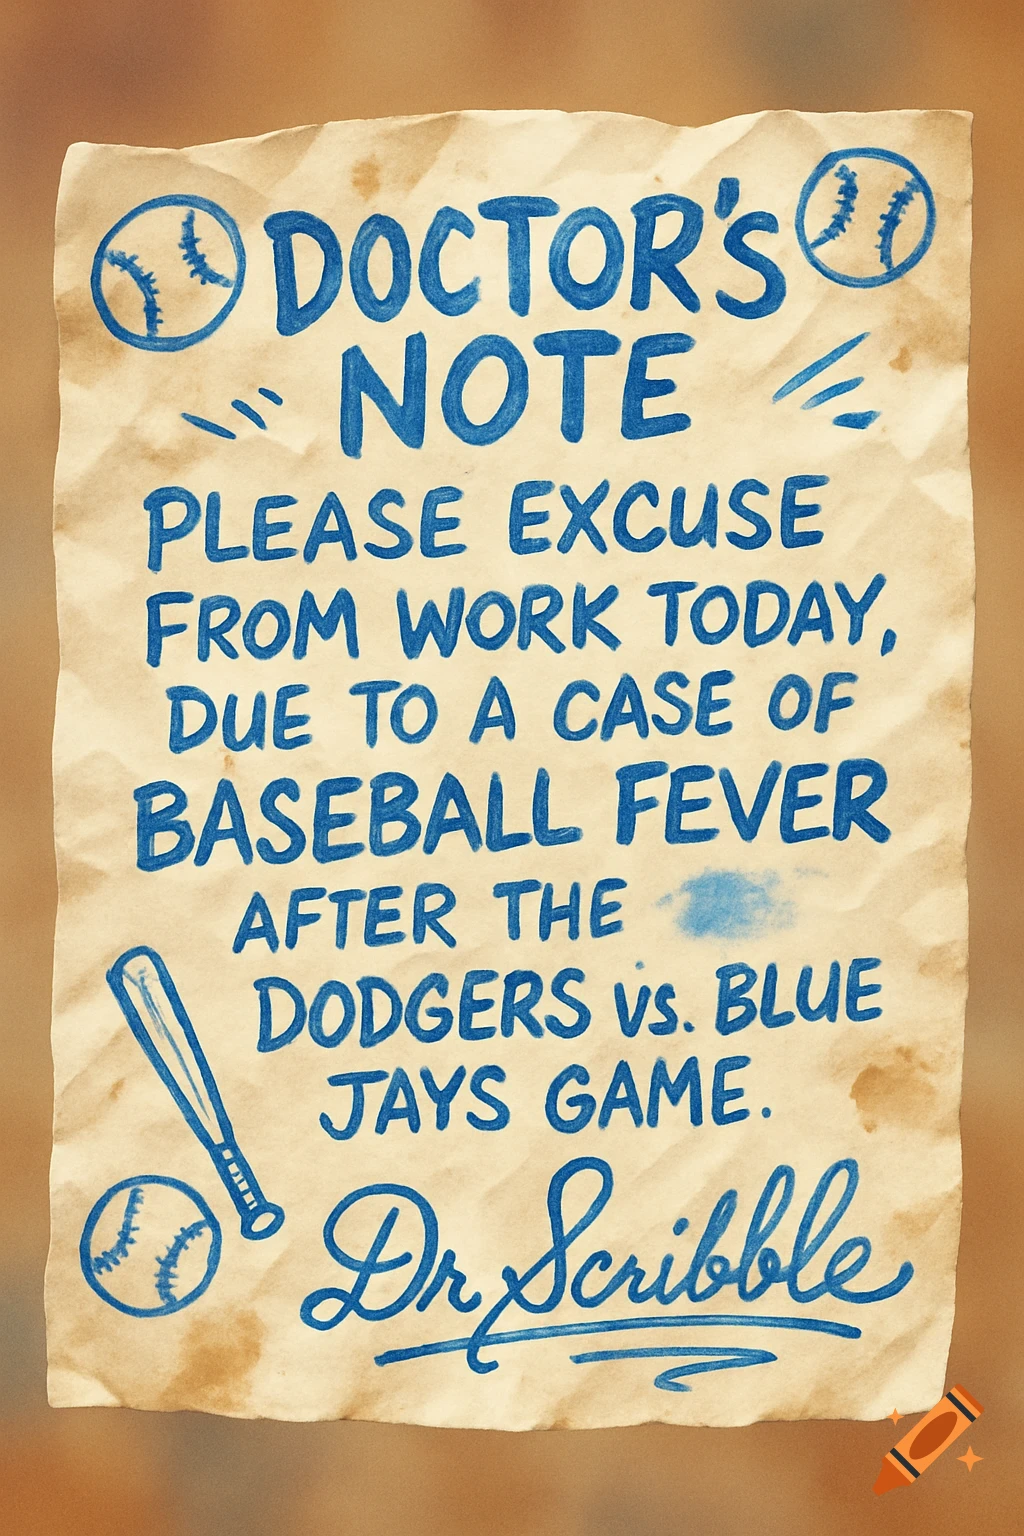 DOCTOR'S
NOTE
PLEASE EXCUSE
FROM WORK TODAY,
DUE TO A CASE OF
BASEBALL FEVER
AFTER THE
DODGERS vs. BLUE
JAYS GAME.
Dr Scribble